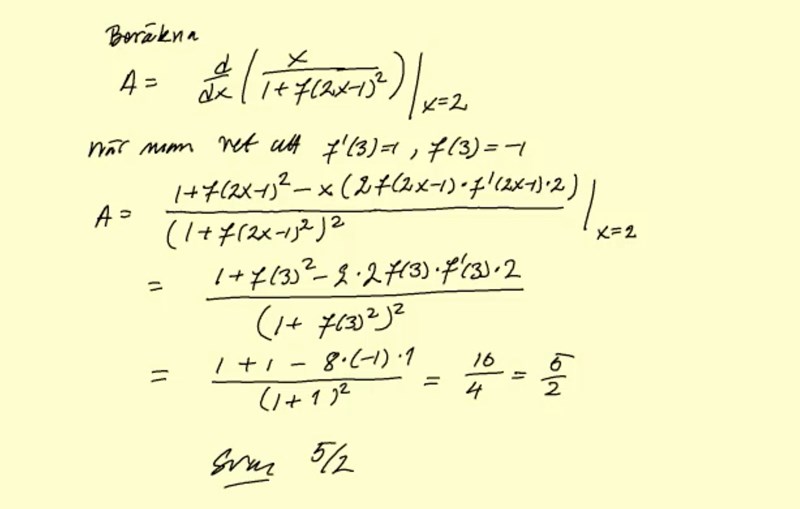 Beräkna
A = d/dx ( x / (1 + f(2x-1)²) ) |x=2
när man vet att f'(3)=1, f(3)=-1
A = (1 + f(2x-1)² - x(2f(2x-1)·f'(2x-1)·2)) / (1 + f(2x-1)²)² |x=2
= (1 + f(3)² - 2·2f(3)·f'(3)·2) / (1 + f(3)²)²
= (1 + 1 - 8·(-1)·1) / (1+1)² = 10/4 = 5/2
Svar 5/2